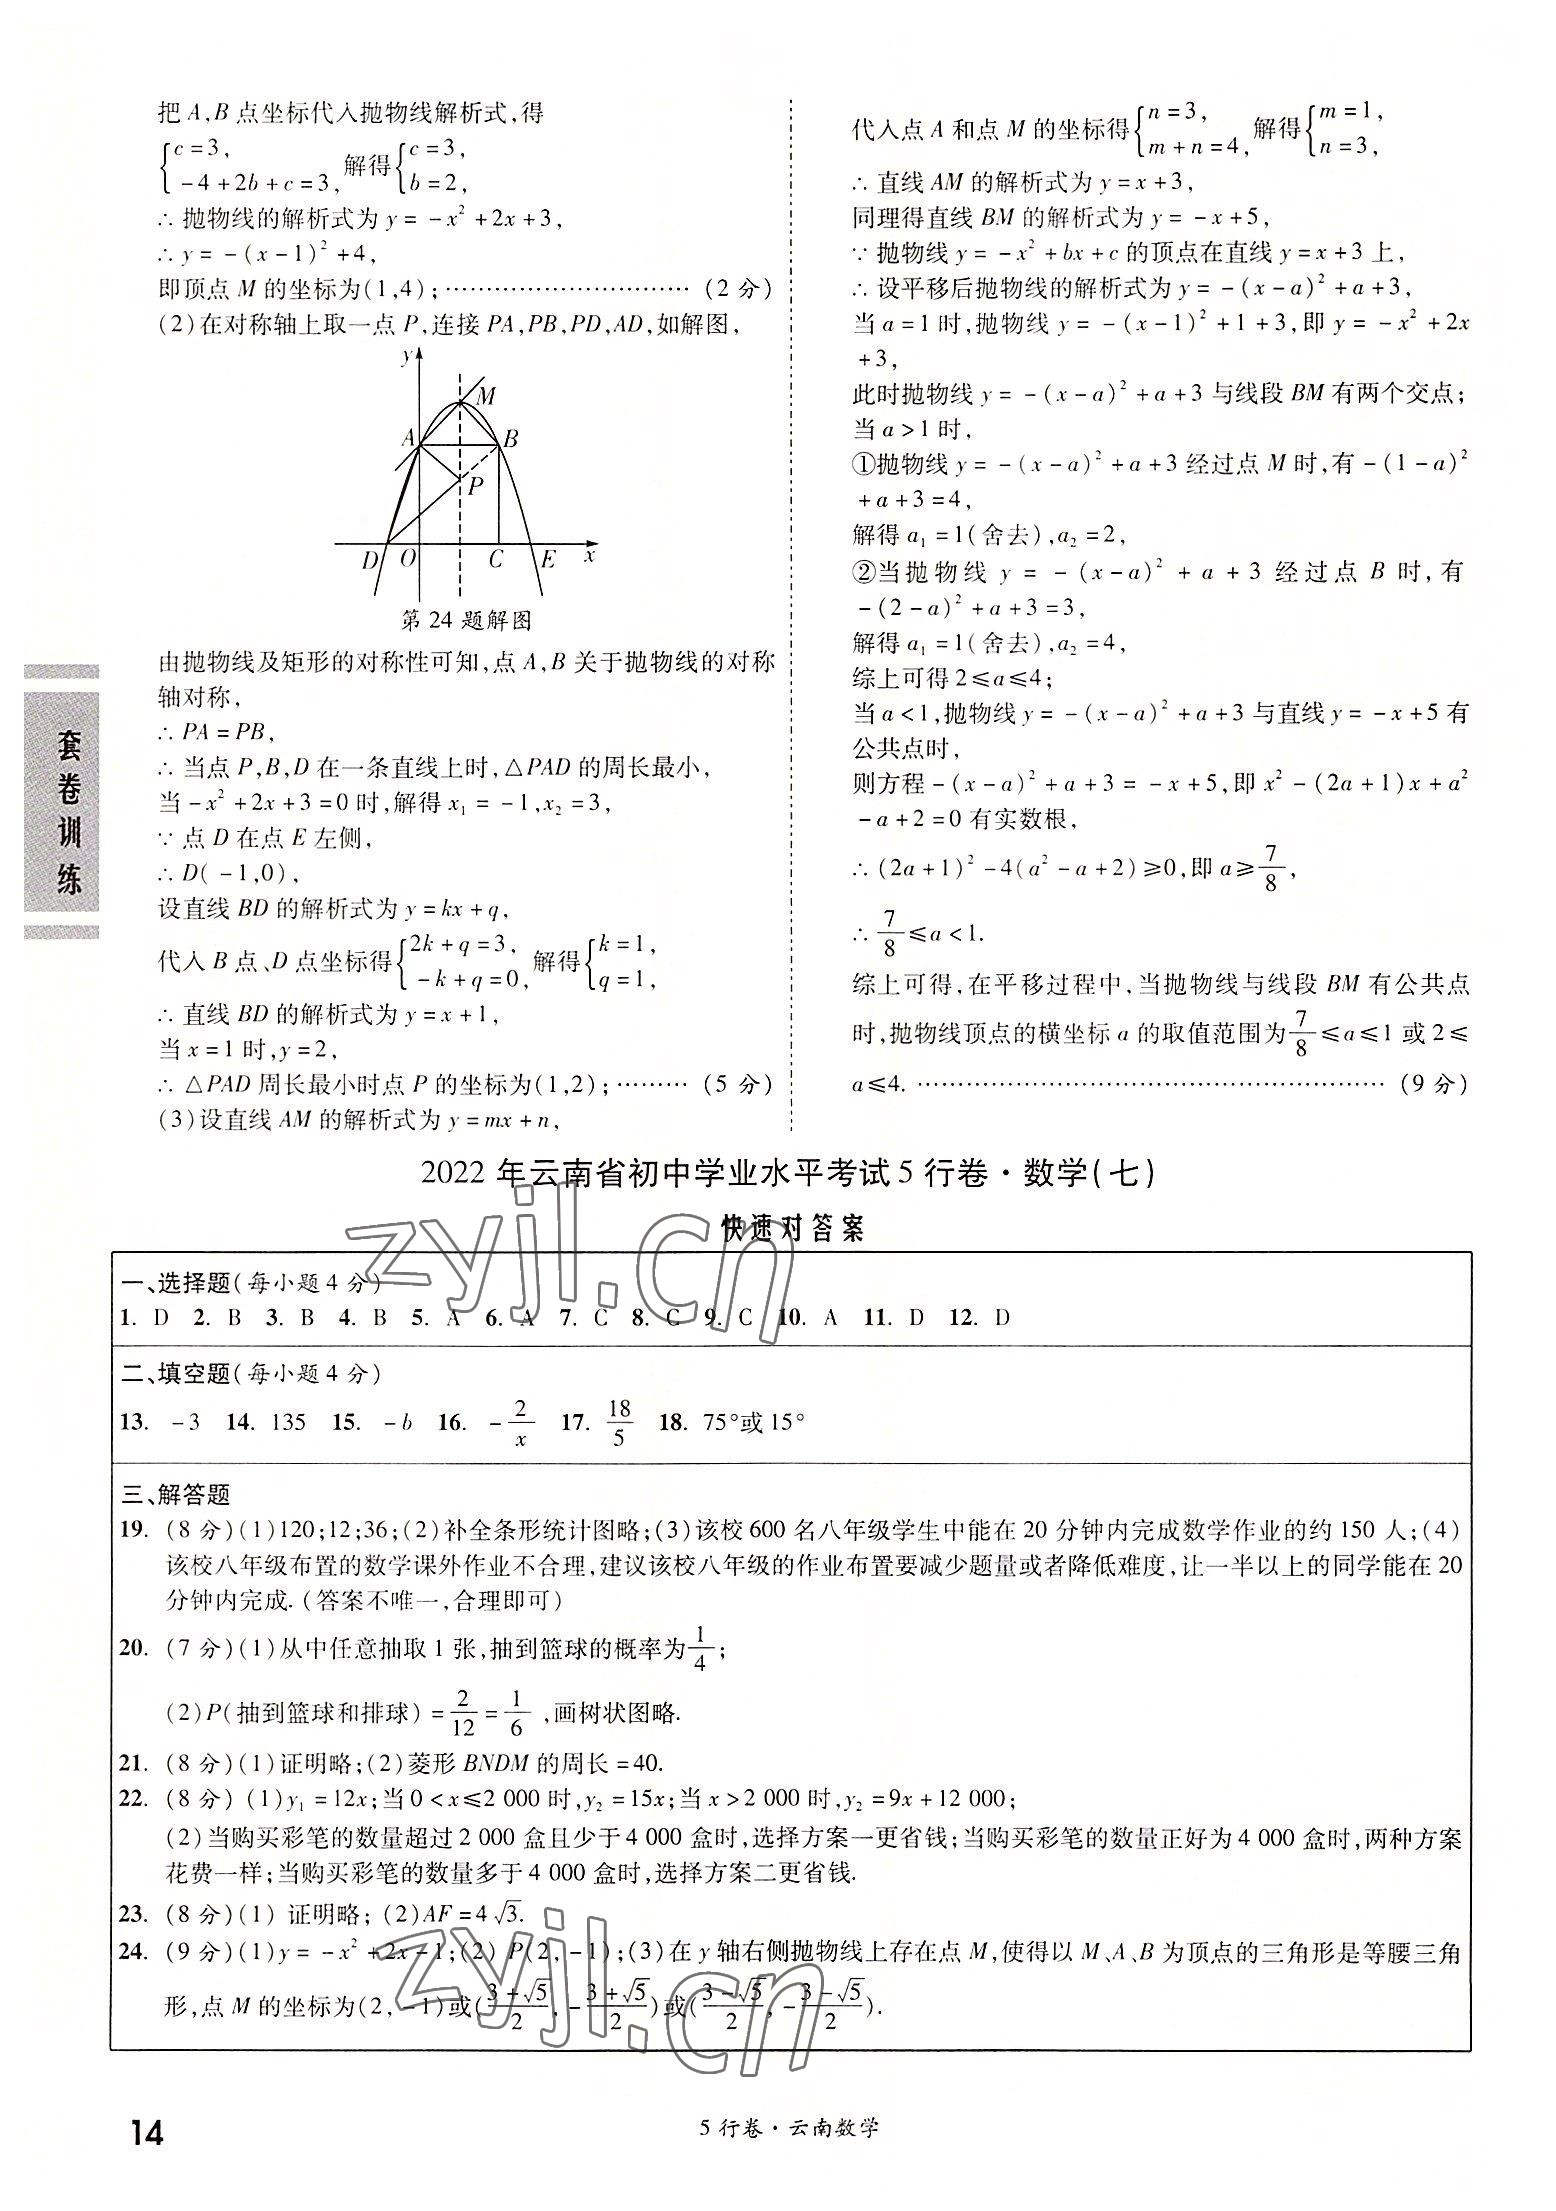 把 A,B 点坐标代入抛物线解析式,得
{c=3, -4+2b+c=3, 解得{c=3, b=2,
∴ 抛物线的解析式为 y=-x²+2x+3,
∴ y=-(x-1)²+4,
即顶点 M 的坐标为(1,4); …………………………(2 分)
(2)在对称轴上取一点 P,连接 PA,PB,PD,AD,如解图,
y
M
A
B
P
D
O
C
E
x
第 24 题解图
由抛物线及矩形的对称性可知,点 A,B 关于抛物线的对称
轴对称,
∴ PA=PB,
∴ 当点 P,B,D 在一条直线上时,△PAD 的周长最小,
当-x²+2x+3=0 时,解得 x₁=-1,x₂=3,
∵ 点 D 在点 E 左侧,
∴ D(-1,0),
设直线 BD 的解析式为 y=kx+q,
代入 B 点、D 点坐标得{2k+q=3, -k+q=0, 解得{k=1, q=1,
∴ 直线 BD 的解析式为 y=x+1,
当 x=1 时,y=2,
∴ △PAD 周长最小时点 P 的坐标为(1,2); ………(5 分)
(3)设直线 AM 的解析式为 y=mx+n,
代入点 A 和点 M 的坐标得{n=3, m+n=4, 解得{m=1, n=3,
∴ 直线 AM 的解析式为 y=x+3,
同理得直线 BM 的解析式为 y=-x+5,
∵ 抛物线 y=-x²+bx+c 的顶点在直线 y=x+3 上,
∴ 设平移后抛物线的解析式为 y=-(x-a)²+a+3,
当 a=1 时,抛物线 y=-(x-1)²+1+3,即 y=-x²+2x
+3,
此时抛物线 y=-(x-a)²+a+3 与线段 BM 有两个交点;
当 a>1 时,
①抛物线 y=-(x-a)²+a+3 经过点 M 时,有-(1-a)²
+a+3=4,
解得 a₁=1(舍去),a₂=2,
②当抛物线 y=-(x-a)²+a+3 经过点 B 时,有
-(2-a)²+a+3=3,
解得 a₁=1(舍去),a₂=4,
综上可得 2≤a≤4;
当 a<1,抛物线 y=-(x-a)²+a+3 与直线 y=-x+5 有
公共点时,
则方程-(x-a)²+a+3=-x+5,即 x²-(2a+1)x+a²
-a+2=0 有实数根,
∴ (2a+1)²-4(a²-a+2)≥0,即 a≥7/8,
∴ 7/8≤a<1.
综上可得,在平移过程中,当抛物线与线段 BM 有公共点
时,抛物线顶点的横坐标 a 的取值范围为7/8≤a≤1 或 2≤
a≤4. …………………………………………………(9 分)
套卷训练
2022 年云南省初中学业水平考试 5 行卷·数学(七)
快速对答案
一、选择题(每小题 4 分)
1. D 2. B 3. B 4. B 5. A 6. A 7. C 8. C 9. C 10. A 11. D 12. D
二、填空题(每小题 4 分)
13. -3 14. 135 15. -b 16. -2/x 17. 18/5 18. 75°或 15°
三、解答题
19. (8 分)(1)120;12;36;(2)补全条形统计图略;(3)该校 600 名八年级学生中能在 20 分钟内完成数学作业的约 150 人;(4)
该校八年级布置的数学课外作业不合理,建议该校八年级的作业布置要减少题量或者降低难度,让一半以上的同学能在 20
分钟内完成. (答案不唯一,合理即可)
20. (7 分)(1)从中任意抽取 1 张,抽到篮球的概率为1/4;
(2)P(抽到篮球和排球)=2/12=1/6,画树状图略.
21. (8 分)(1)证明略;(2)菱形 BNDM 的周长=40.
22. (8 分) (1)y₁=12x;当 0<x≤2 000 时,y₂=15x;当 x>2 000 时,y₂=9x+12 000;
(2)当购买彩笔的数量超过 2 000 盒且少于 4 000 盒时,选择方案一更省钱;当购买彩笔的数量正好为 4 000 盒时,两种方案
花费一样;当购买彩笔的数量多于 4 000 盒时,选择方案二更省钱.
23. (8 分)(1) 证明略; (2)AF=4√3.
24. (9 分)(1)y=-x²+2x-1;(2) P(2,-1);(3)在 y 轴右侧抛物线上存在点 M,使得以 M、A、B 为顶点的三角形是等腰三角
形,点 M 的坐标为(2,-1)或((3+√5)/2,-(3+√5)/2)或((3-√5)/2,-(3-√5)/2).
zyjl.cn
zyjl.cn
14
5 行卷·云南数学